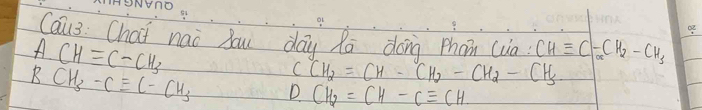 Câu3: Chất nào sau đây là đồng phân của : CH ≡ C - CH2 - CH3
A. CH ≡ C - CH3
C CH2 = CH - CH2 - CH2 - CH3.
B. CH3 - C ≡ C - CH3
D. CH2 = CH - C ≡ CH